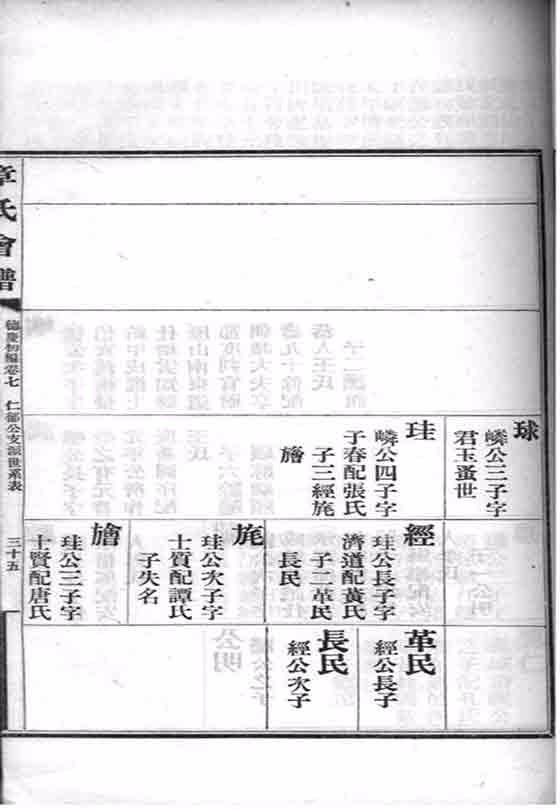 球
嶙公三子字
君玉蚤世
珪
嶙公四子字
子春配張氏
子三經旄
旝
經
珪公長子字
濟道配黃氏
子二革民
長民
旄
珪公次子字
士質配譚氏
子失名
旝
珪公三子字
士賢配唐氏
革民
經公長子
長民
經公次子
章氏會譜
德慶初編卷七
仁郁公支派世系表
三十五